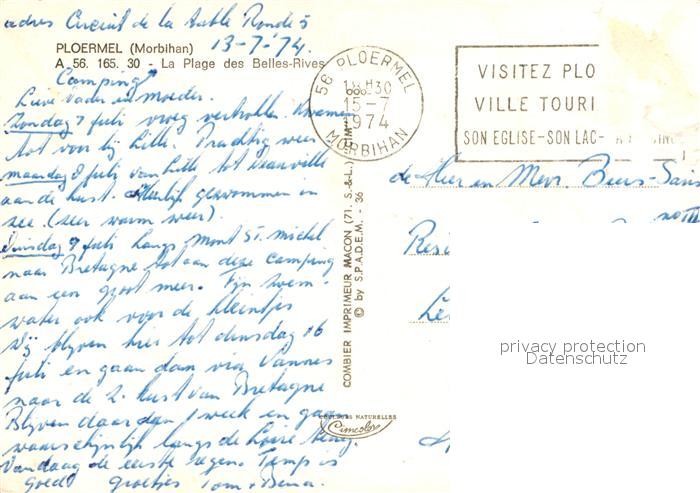 adres Circuit de la table Ronde 5
PLOERMEL (Morbihan) 13-7-'74.
A 56. 165. 30 - La Plage des Belles-Rives
Camping
Lieve Vader en Moeder.
Zondag 7 juli vroeg vertrokken. Kwamen
tot voorbij Lille. Prachtig weer
maandag 8 juli van Lille tot Deauville
aan de kust. Heerlijk gezwommen in
zee. (zeer warm weer).
Dinsdag 9 juli langs Mont St. Michel
naar Bretagne tot aan deze camping
aan een groot meer. Fijn zwem-
water ook voor de kleintjes
Wij blijven hier tot dinsdag 16
juli en gaan dan via Vannes
naar de Z. kust van Bretagne
Blijven daar dan 1 week en gaan
waarschijnlijk langs de Loire terug.
Vandaag de eerste regen. Temp is
goed. groetjes Tom + Bena.
56 PLOERMEL
18H30
15-7
1974
MORBIHAN
VISITEZ PLO
VILLE TOURI
SON EGLISE-SON LAC-
COMBIER IMPRIMEUR MACON (71. S.-&-L.) "CIM"
© by S.P.A.D.E.M. - 36
COULEURS NATURELLES
Cimcolor
de Heer en Mevr. Buurs-Sain
Resi
Le
privacy protection
Datenschutz